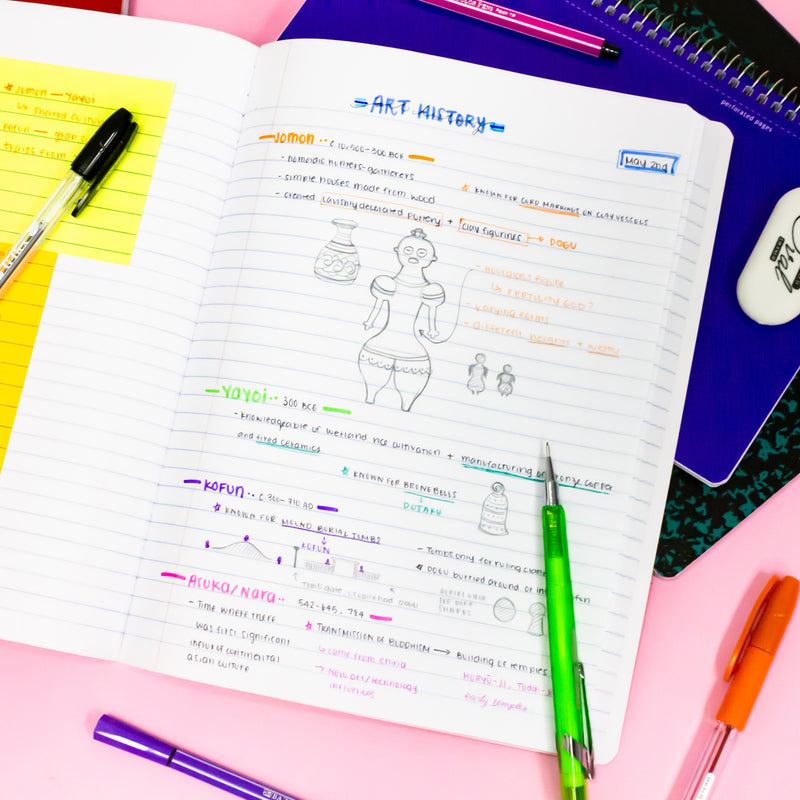 Jomon — Yayoi
Kofun —
traits from
ART HISTORY
MAY 2nd
Jomon •• C.10,500-300 BCE
- nomadic hunters-gatherers
- simple houses made from wood
- created lavishly decorated pottery + clay figurines → DOGU
KNOWN FOR CORD MARKINGS ON CLAY VESSELS
↳ FERTILITY GOD?
- varying forms
- different heights +
Yayoi •• 300 BCE
- knowledgeable of wetland rice cultivation + manufacturing of bronze, copper
and fired ceramics
KNOWN FOR BRONZE BELLS
↓
DOTAKU
KOFUN •• C.300-710 AD
KNOWN FOR MOUND BURIAL TOMBS
↓
KOFUN
- Tombs only for ruling
DOGU burried around or
Asuka/Nara •• 542-645, 784
- Time where there
was first significant
influx of continental
asian culture
TRANSMISSION OF BUDDHISM → Building of temples
↳ came from china
→ New art/technology
influences
HORYU-JI, Todai-
early temples
perforated pages